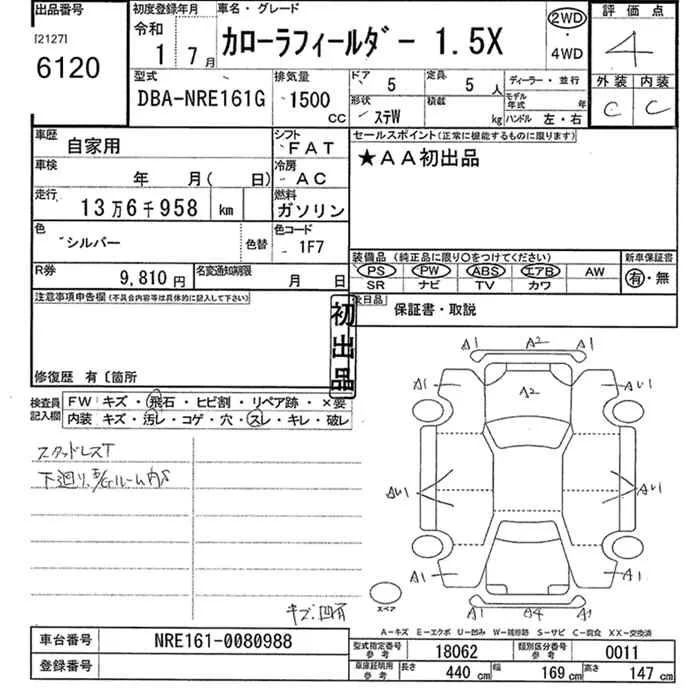 出品番号
[2127]
6120
初度登録年月
令和
1 7月
車名・グレード
カローラフィールダー 1.5X
2WD
・
4WD
評価点
4
外装 内装
C C
型式
DBA-NRE161G
排気量
1500
CC
ドア 5
定員 5 人
形状
ステW
積載
kg
ディーラー・並行
モデル年式 年
ハンドル 左・右
車歴
自家用
シフト
FAT
車検
年 月( 日)
冷房
AC
走行
13万6千958 km
燃料
ガソリン
色
シルバー
色替
色コード
1F7
R券
9,810円
名変通知期限
月 日
セールスポイント(正常に機能するものに限ります)
★AA初出品
装備品 (純正品に限り〇をつけてください)
PS PW ABS エアB AW
SR ナビ TV カワ
新車保証書
有・無
後日品
保証書・取説
注意事項申告欄(不具合内容等は具体的に記入して下さい)
初出品
修復歴 有〔箇所
検査員
記入欄
FW キズ・飛石・ヒビ割・リペア跡・×要
内装 キズ・汚レ・コゲ・穴・スレ・キレ・破レ
スタッドレスT
キズ凹有
A1 A2 A1
A1 A2 AU1
AU1 AU1
A1 A1
A1 A4 A1
スペア
A-キズ E-エクボ U-凹み W-補修跡 S-サビ C-腐食 XX-交換済
車台番号
NRE161-0080988
登録番号
型式指定番号
参考
18062
類別区分番号
参考
0011
車庫証明用
参考
長さ 440 cm
幅 169 cm
高さ 147 cm